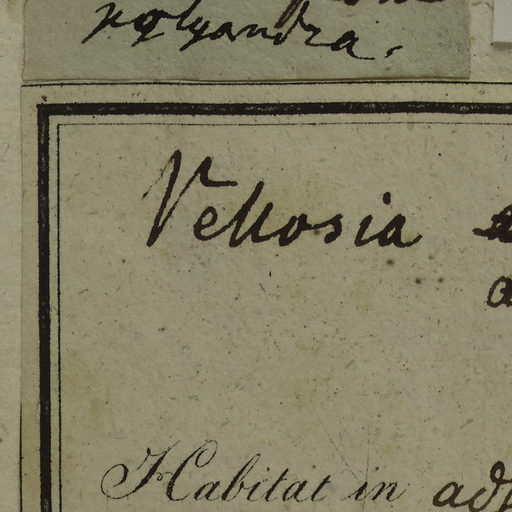 polyandra.
Vellosia
Habitat in